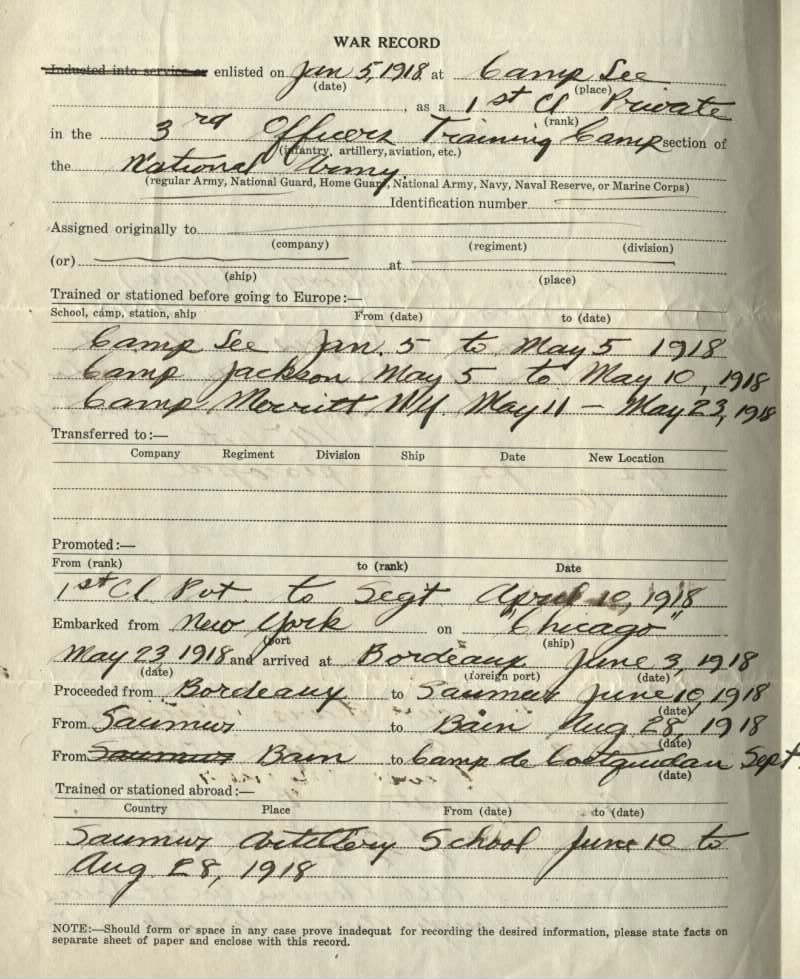 WAR RECORD
Inducted into service or enlisted on Jan 5, 1918 at Camp Lee
(date) (place)
, as a 1st Cl Private
(rank)
in the 3rd Officers Training Camp section of
(infantry, artillery, aviation, etc.)
the National Army
(regular Army, National Guard, Home Guard, National Army, Navy, Naval Reserve, or Marine Corps)
Identification number
Assigned originally to
(company) (regiment) (division)
(or) at
(ship) (place)
Trained or stationed before going to Europe:—
School, camp, station, ship From (date) to (date)
Camp Lee Jan. 5 to May 5 1918
Camp Jackson May 5 to May 10, 1918
Camp Merritt NY. May 11 – May 23, 1918
Transferred to:—
Company Regiment Division Ship Date New Location
Promoted:—
From (rank) to (rank) Date
1st Cl. Pvt. to Segt. April 10, 1918
Embarked from New York on "Chicago"
(port (ship)
May 23, 1918 and arrived at Bordeaux June 3, 1918
(date) (foreign port) (date)
Proceeded from Bordeaux to Saumur June 10, 1918
(date)
From Saumur to Bain Aug 28, 1918
(date)
From Saumur Bain to Camp de Coetquidan Sept
(date)
Trained or stationed abroad:—
Country Place From (date) to (date)
Saumur Artillery School June 10 to
Aug 28, 1918
NOTE:—Should form or space in any case prove inadequat for recording the desired information, please state facts on
separate sheet of paper and enclose with this record.